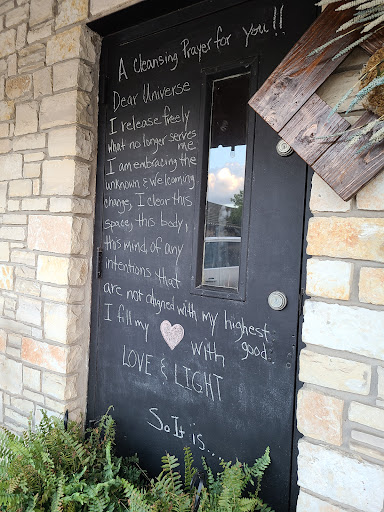 A Cleansing Prayer for you!!
Dear Universe
I release freely
what no longer serves
me
I am embracing the
unknown & welcoming
change, I clear this
space, this body,
this mind of any
intentions that
are not aligned with my highest
good.
I fill my with
LOVE & LIGHT
So It is...